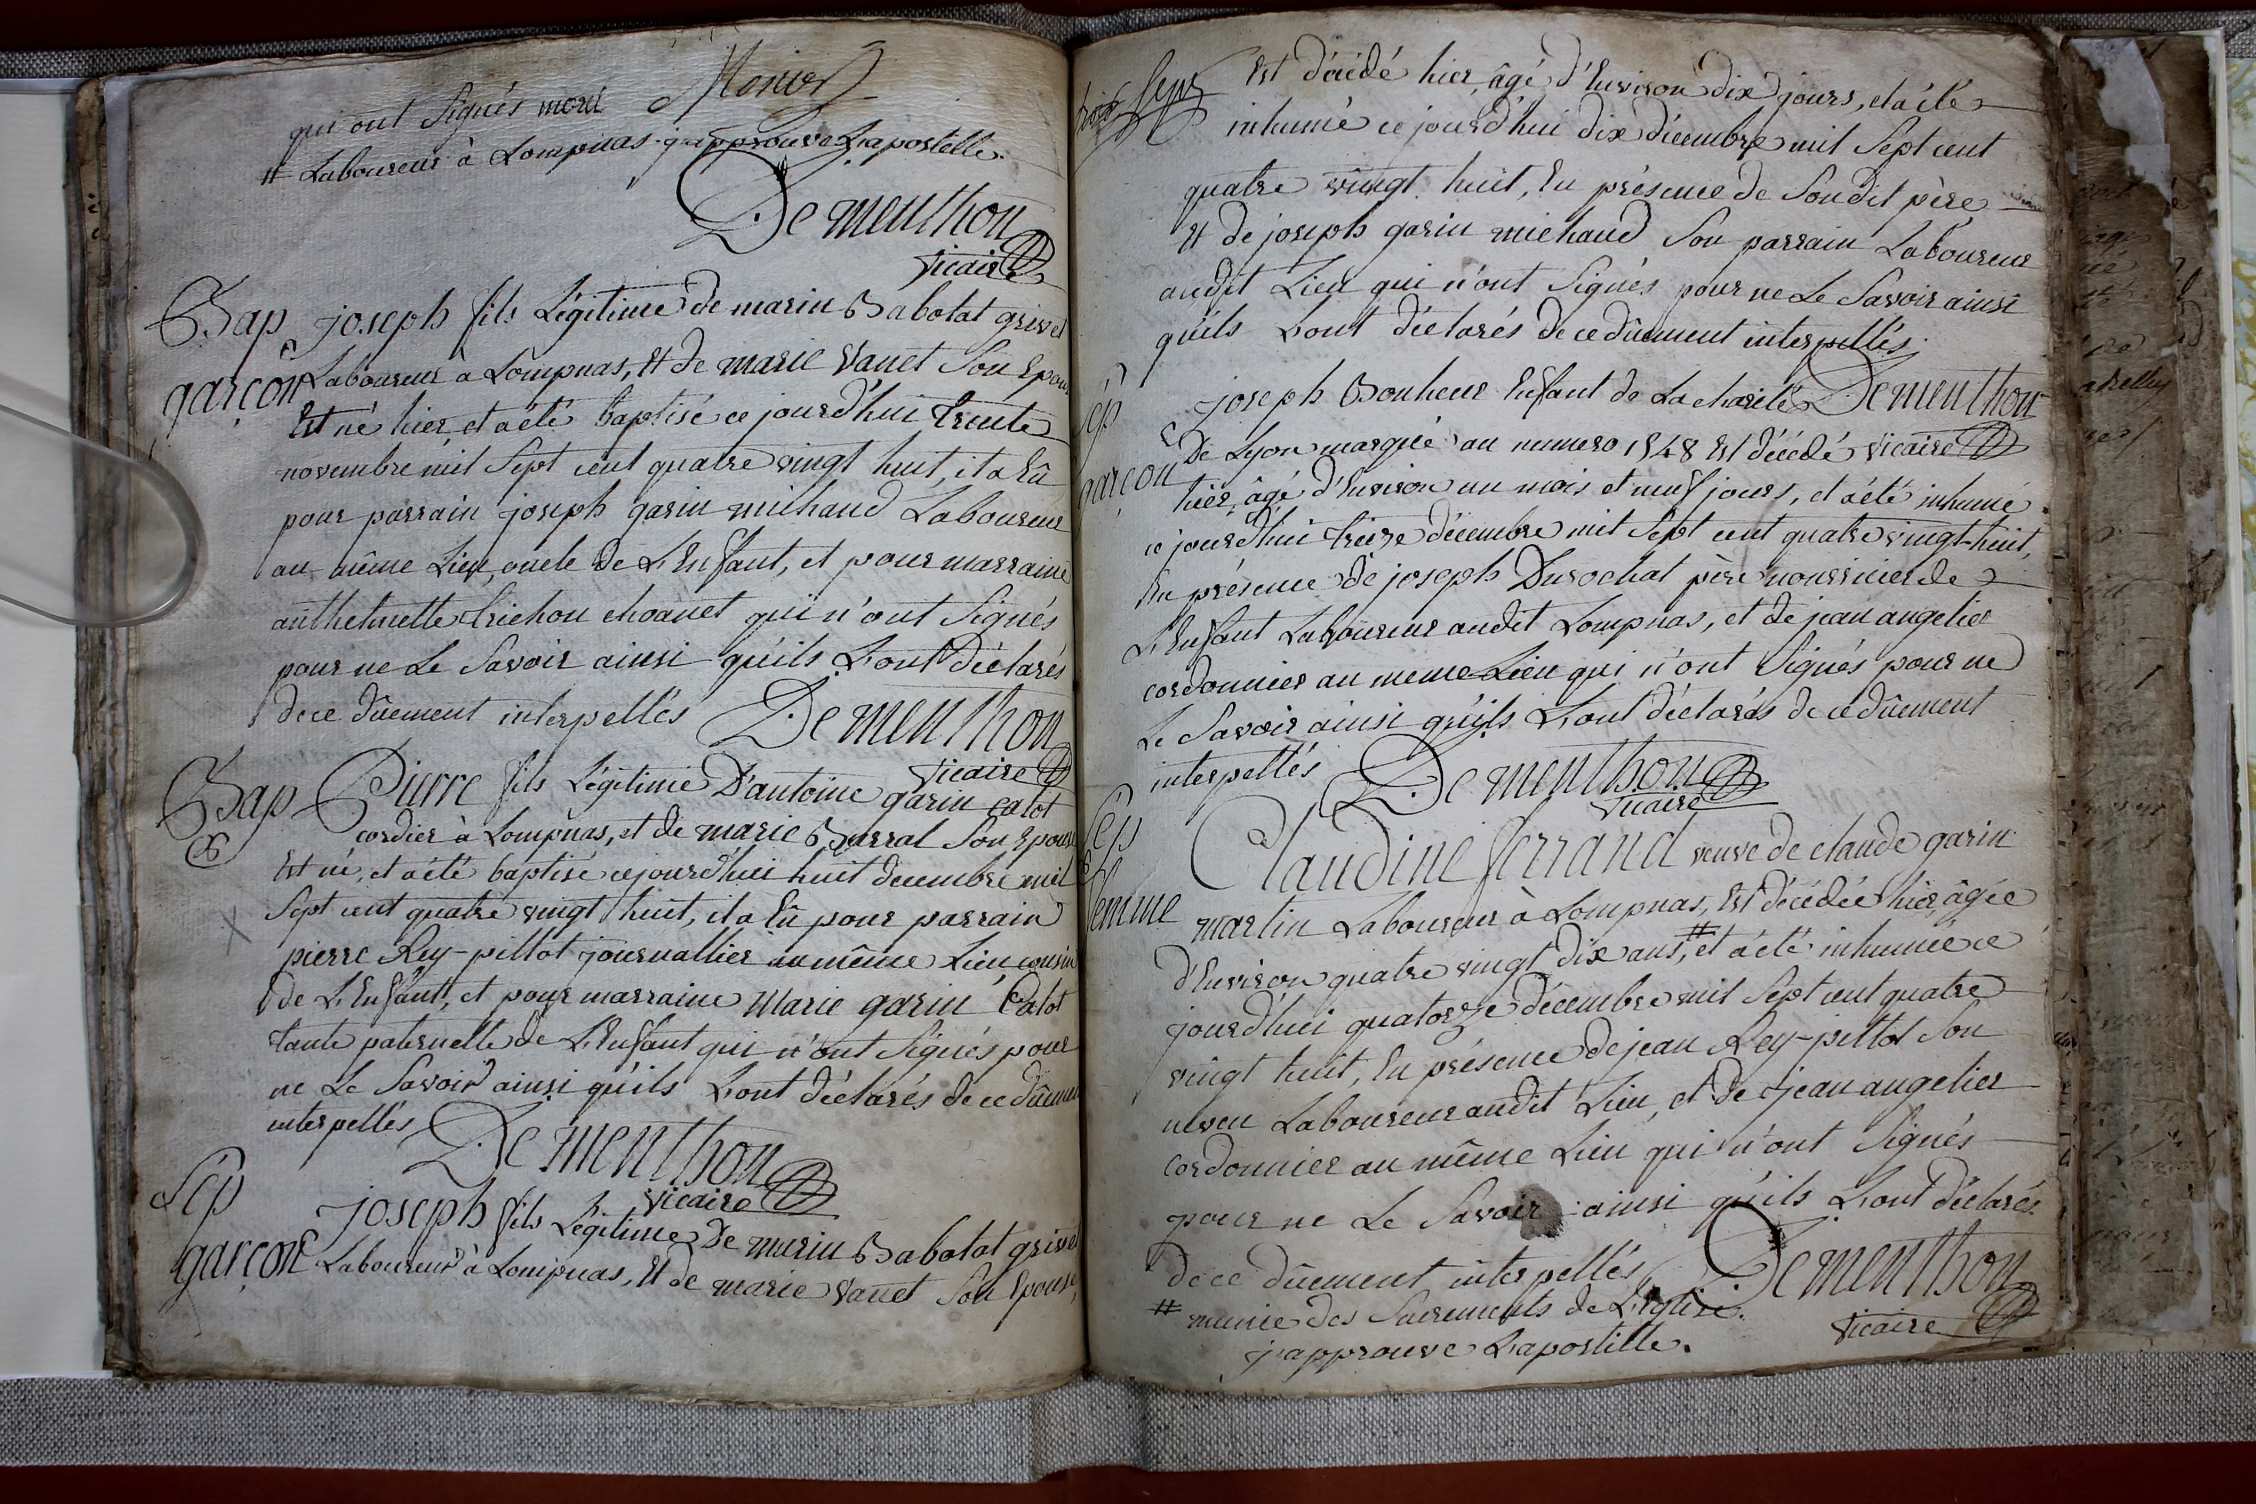 qui ont signés morel Monier
# Laboureur à Lompnas j'approuve L'apostille.
De menthon
vicaire
Bap joseph fils Légitime de marin Babolat grivel
garçon Laboureur à Lompnas, Et de marie vanet son Epouse
Est né hier, et a été baptisé ce jourd'hui trente
novembre mil sept cent quatre vingt huit, il a Eû
pour parrain joseph garin michaud Laboureur
au même Lieu, oncle de L'Enfant, et pour marraine
anthelmette trichon choanet qui n'ont signés
pour ne Le savoir ainsi qu'ils L'ont déclarés
de ce dûement interpellés De menthon
vicaire
Bap Pierre fils Légitime D'antoine garin calot
cordier à Lompnas, et de marie Barral son Epouse
Est né, et a été baptisé cejourd'hui huit decembre mil
sept cent quatre vingt huit, il a Eû pour parrain
pierre Rey-pillot journallier au même Lieu cousin
de L'Enfant, et pour marraine Marie garin Calot
tante paternelle de L'Enfant qui n'ont signés pour
ne Le savoir ainsi qu'ils L'ont déclarés de ce dûement
interpellés De menthon
vicaire
Sép joseph fils Légitime de marin Babolat grivel
garçon Laboureur à Lompnas, Et de marie vanet son Epouse,
Est décédé hier, âgé d'Environ dix jours, et a été
inhumé ce jourd'hui dix décembre mil sept cent
quatre vingt huit, En présence de son dit père
Et de joseph garin michaud son parrain Laboureur
audit Lieu qui n'ont signés pour ne Le savoir ainsi
qu'ils L'ont déclarés de ce dûement interpellés.
De menthon
vicaire
sép joseph Bonheur Enfant de La charité
garçon De Lyon marqué au numero 1548 Est décédé
hier, âgé d'Environ un mois et neuf jours, et a été inhumé
ce jourd'hui treize décembre mil sept cent quatre vingt-huit,
En présence de joseph Durochat père nourricier de
L'Enfant Laboureur audit Lompnas, et de jean angelier
cordonnier au meme Lieu qui n'ont signés pour ne
Le savoir ainsi qu'ils L'ont déclarés de ce dûement
interpellés De menthon
vicaire
Sép Claudine ferrand veuve de claude garin
femme martin Laboureur à Lompnas, Est décédée hier, âgée
d'Environ quatre vingt dix ans,# et a été inhumée ce
jourd'hui quatorze décembre mil sept cent quatre
vingt huit, En présence de jean Rey-pillot son
neveu Laboureur audit Lieu, et de jean angelier
cordonnier au même Lieu qui n'ont signés
pour ne Le savoir ainsi qu'ils L'ont déclarés
de ce dûement interpellés De menthon
vicaire
# munie des sacrements de L'église.
j'approuve L'apostille.